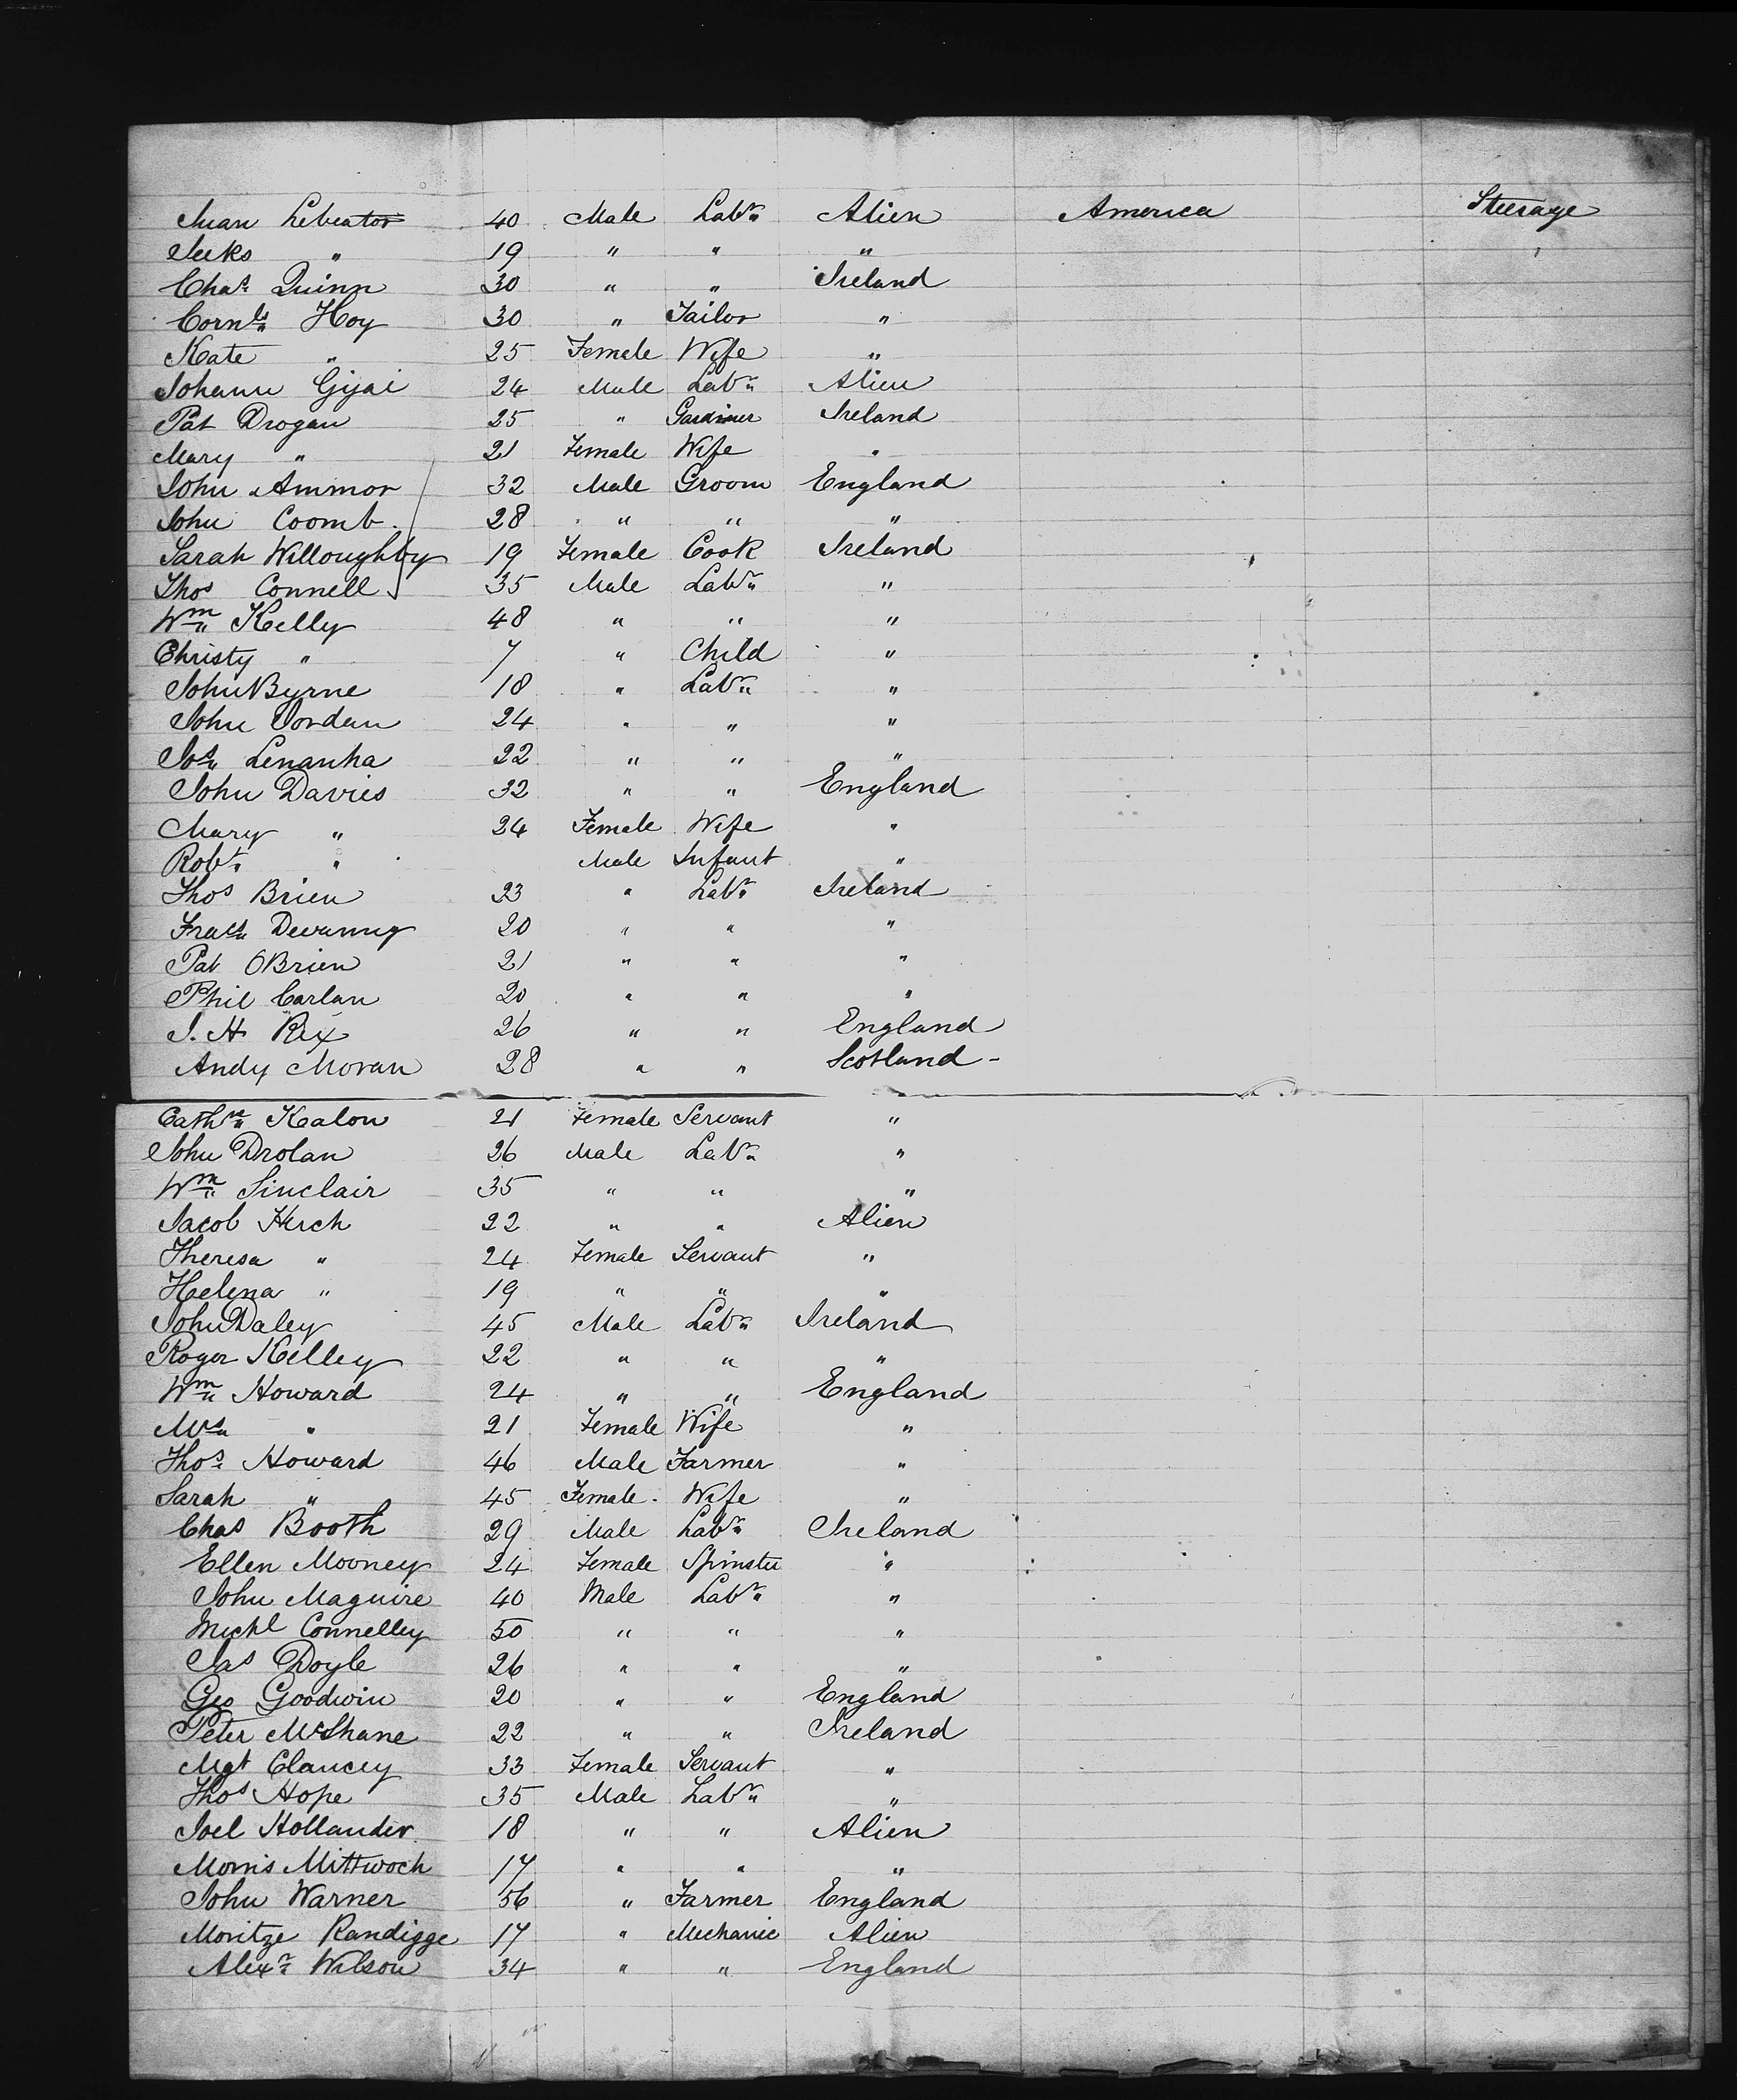 Juan Lebeator 40 Male Labr. Alien America Steerage
Seeks " 19 " " "
Chas. Quinn 30 " " Ireland
Cornls. Hoy 30 " Tailor "
Kate " 25 Female Wife "
Johann Gijai 24 Male Labr. Alien
Pat Drogan 25 " Gardiner Ireland
Mary " 21 Female Wife "
John Ammor 32 Male Groom England
John Coomb. 28 " " "
Sarah Willoughby 19 Female Cook Ireland
Thos Connell 35 Male Labr. "
Wm. Kelly 48 " " "
Christy " 7 " Child "
John Byrne 18 " Labr. "
John Jordan 24 " " "
Jos. Lenanha 22 " " "
John Davies 32 " " England
Mary " 24 Female Wife "
Robt. " Male Infant "
Thos Brien 23 " Labr. Ireland
Fracs. Devanny 20 " " "
Pat OBrien 21 " " "
Phil Carlan 20 " " "
J. H. Rix 26 " " England
Andy Moran 28 " " Scotland -
Cathne. Kealon 21 Female Servant "
John Drolan 26 Male Labr. "
Wm. Sinclair 35 " " "
Jacob Hirch 22 " " Alien
Theresa " 24 Female Servant "
Helena " 19 " " "
John Daley 45 Male Labr. Ireland
Roger Kelley 22 " " "
Wm. Howard 24 " " England
Mrs. " 21 Female Wife "
Thos. Howard 46 Male Farmer "
Sarah " 45 Female. Wife "
Chas Booth 29 Male Labr. Ireland
Ellen Mooney 24 Female Spinster "
John Maguire 40 Male Labr. "
Michl Connelley 50 " " "
Jas Doyle 26 " " "
Geo Goodwin 20 " " England
Peter McShane 22 " " Ireland
Mgt Clancey 33 Female Servant "
Thos Hope 35 Male Labr. "
Joel Hollander 18 " " Alien
Morris Mittwoch 17 " " "
John Warner 56 " Farmer England
Moritze Randigge 17 " Mechanic Alien
Alexr. Wilson 34 " " England